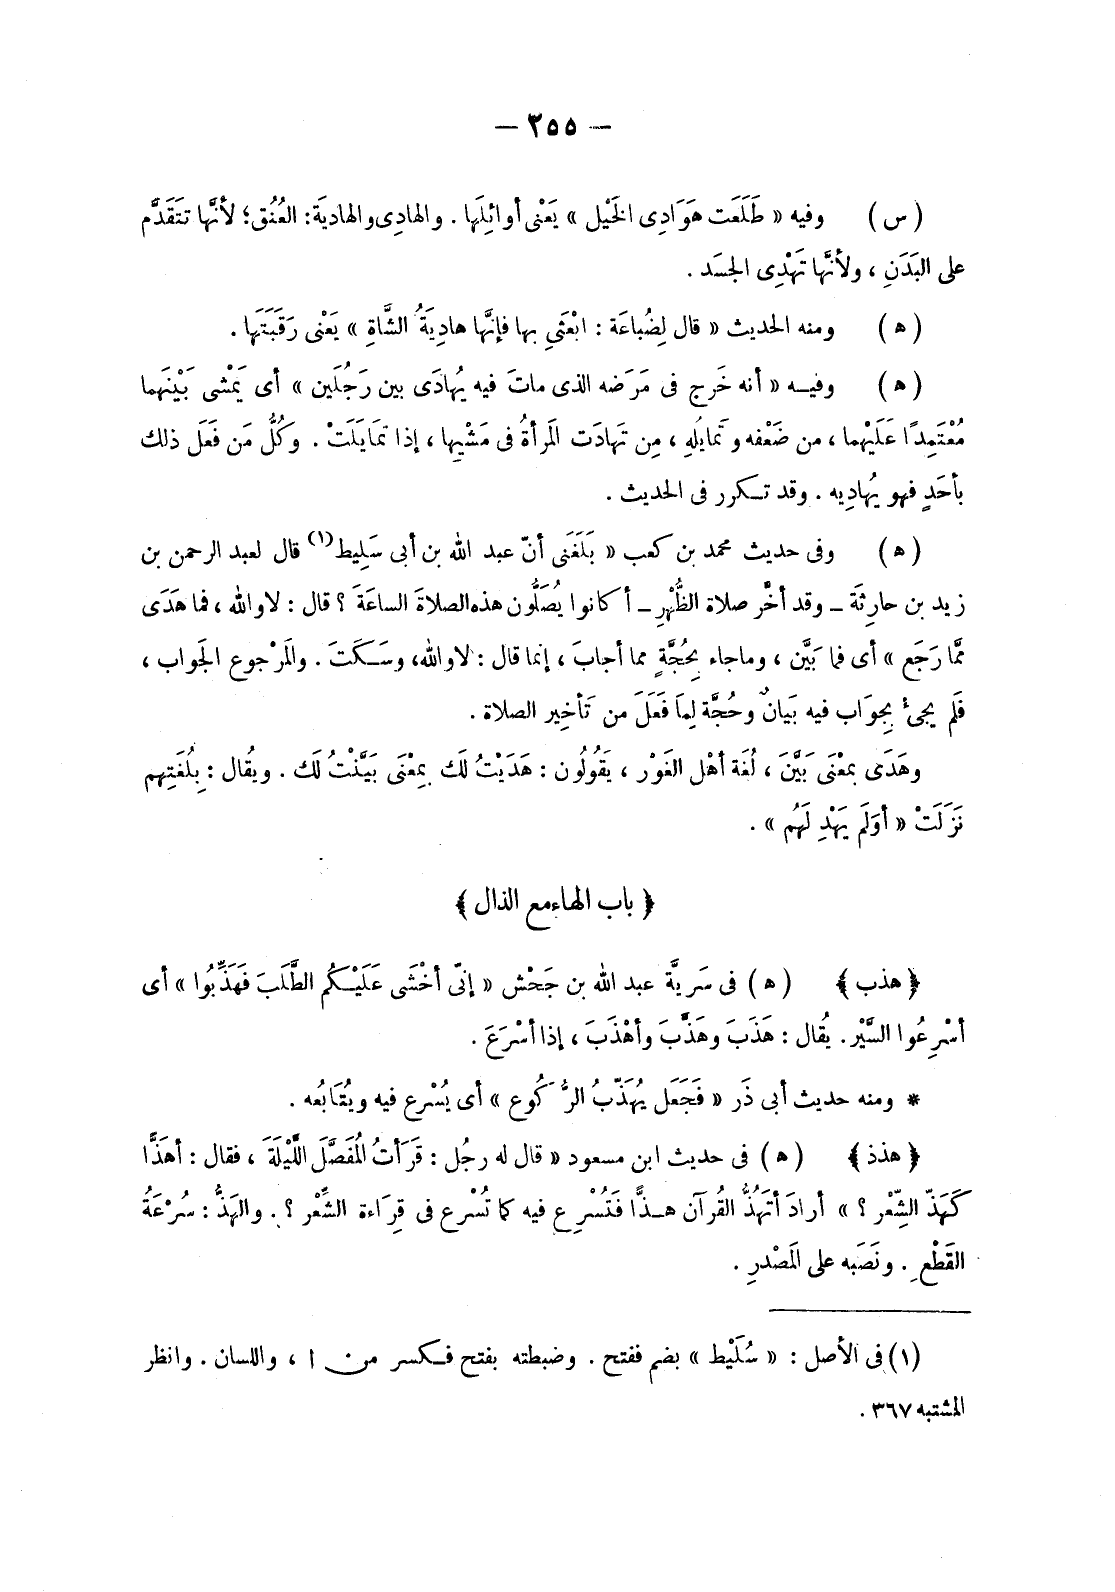 — ٢٥٥ —
(س) وفيه « طَلَعَت هَوَادِى الخَيْل » يَعْنى أوائلِهَا . والهادِى والهاديَة: العُنُق؛ لأنَّها تتَقَدَّم
على البَدَنِ ، ولأنَّها تَهْدِى الجسَد .
(ه) ومنه الحديث « قال لِضُباعَة : ابْعَثِي بها فإنَّها هادِيَةُ الشَّاةِ » يَعْنى رَقَبَتَها .
(ه) وفيـه « أنه خَرج فى مَرَضه الذى ماتَ فيه يُهادَى بين رَجُلَين » أى يَمْشى بَيْنَهما
مُعْتَمِدًا عَلَيْهما ، من ضَعْفه وتَمايُلِهِ ، مِن تَهادَت المرأةُ فى مَشْيِها ، إذا تمَايَلَتْ . وَكُلُّ مَن فَعَل ذلك
بأحَدٍ فهو يُهادِيه . وقد تـكرر فى الحديث .
(ه) وفى حديث محمد بن كعب « بَلَغَنى أنّ عبد الله بن أبى سَلِيط(١) قال لعبد الرحمن بن
زيد بن حارِثَة ــ وقد أخَّر صلاة الظُّهْرِ ــ أكانوا يُصَلُّون هذه الصلاةَ الساعَةَ ؟ قال : لا والله ، فما هَدَى
مَّما رَجَع » أى فما بَيَّن ، وماجاء بِحُجَّةٍ مما أجابَ ، إنما قال : لا والله، وسَـكَتَ . والمَرْجوع الجواب ،
فَلم يجئْ بِجوَاب فيه بَيانٌ وحُجَّة لِمَا فَعَلَ من تَأخِير الصلاة .
وهَدَى بمْعَنى بَيَّنَ ، لُغَة أهْل الغَوْر ، يَقُولُون : هَدَيْتُ لك بِمعْنَى بَيَّنْتُ لك . ويقُال : بِلُغَتِهِم
نَزَلَتْ « أوَلَم يَهْدِ لَهُم » .
﴿ باب الهاء مع الذال ﴾
﴿ هذب ﴾ (ه) فى سَريَّة عبد الله بن جَحْش « إنّى أخْشَى عَلَيْـكُم الطَّلَبَ فَهَذِّبُوا » أى
أسْرِعُوا السَّيْر. يقُال : هَذَبَ وهَذَّبَ وأهْذَبَ ، إذا أسْرَعَ .
* ومنه حديث أبى ذَر « فَجَعَل يُهَذِّبُ الرُّكُوع » أى يُسْرع فيه ويتُابُعه .
﴿ هذذ ﴾ (ه) فى حديث ابن مسعود « قال له رجُل : قَرَأتُ المُفَصَّلَ اللَّيْلَةَ ، فقال : أهَذًّا
كَهَذّ الشِّعْر ؟ » أرادَ أتَهُذُّ القُرآن هـذًّا فَتُسْرِع فيه كما تُسْرع فى قِرَاءة الشِّعْر ؟ . والهذُّ : سُرْعَةُ
القَطْعِ . ونَصَبه على المَصْدرِ .
(١) فى الأصل : « سُلَيْط » بضم ففتح . وضبطته بفتح فـكسر من ا ، واللسان . وانظر
المشتبه ٣٦٧ .